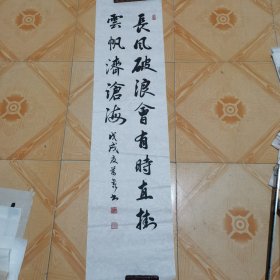 長風破浪會有時直掛
雲帆濟滄海
戊戌夏
书